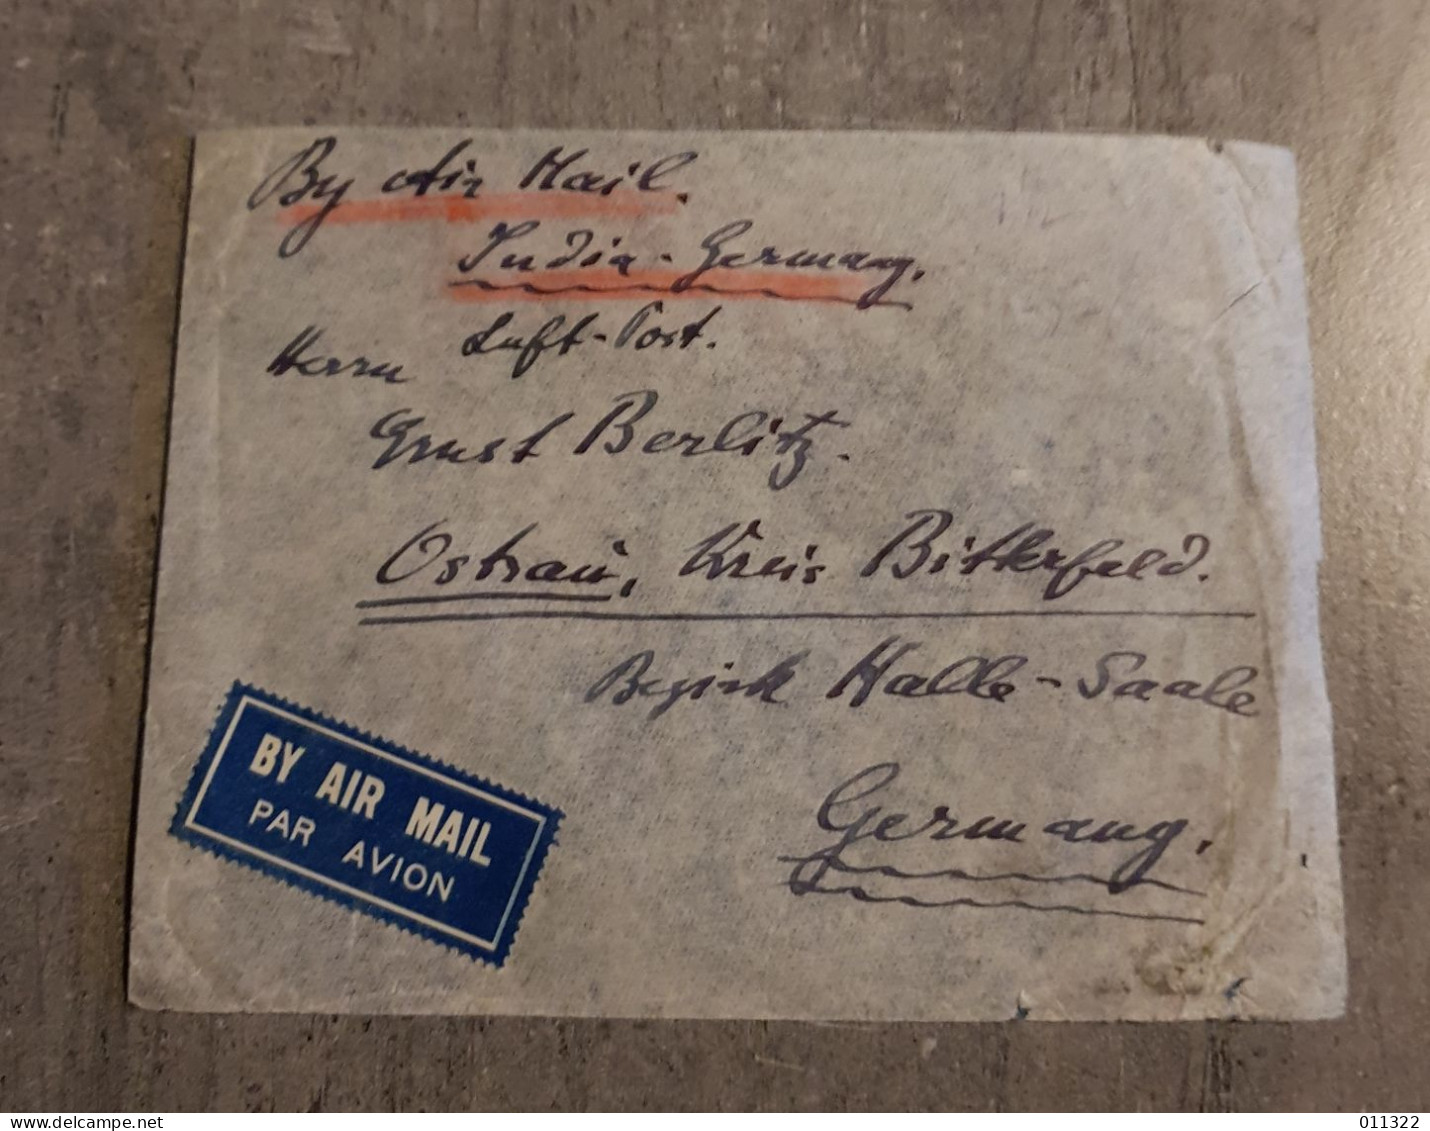 By Air Mail.
India - Germany.
Luft-Post.
Herrn
Ernst Berlitz.
Ostrau, Kreis Bitterfeld.
Bezirk Halle-Saale
Germany.
BY AIR MAIL
PAR AVION
delcampe.net
011322